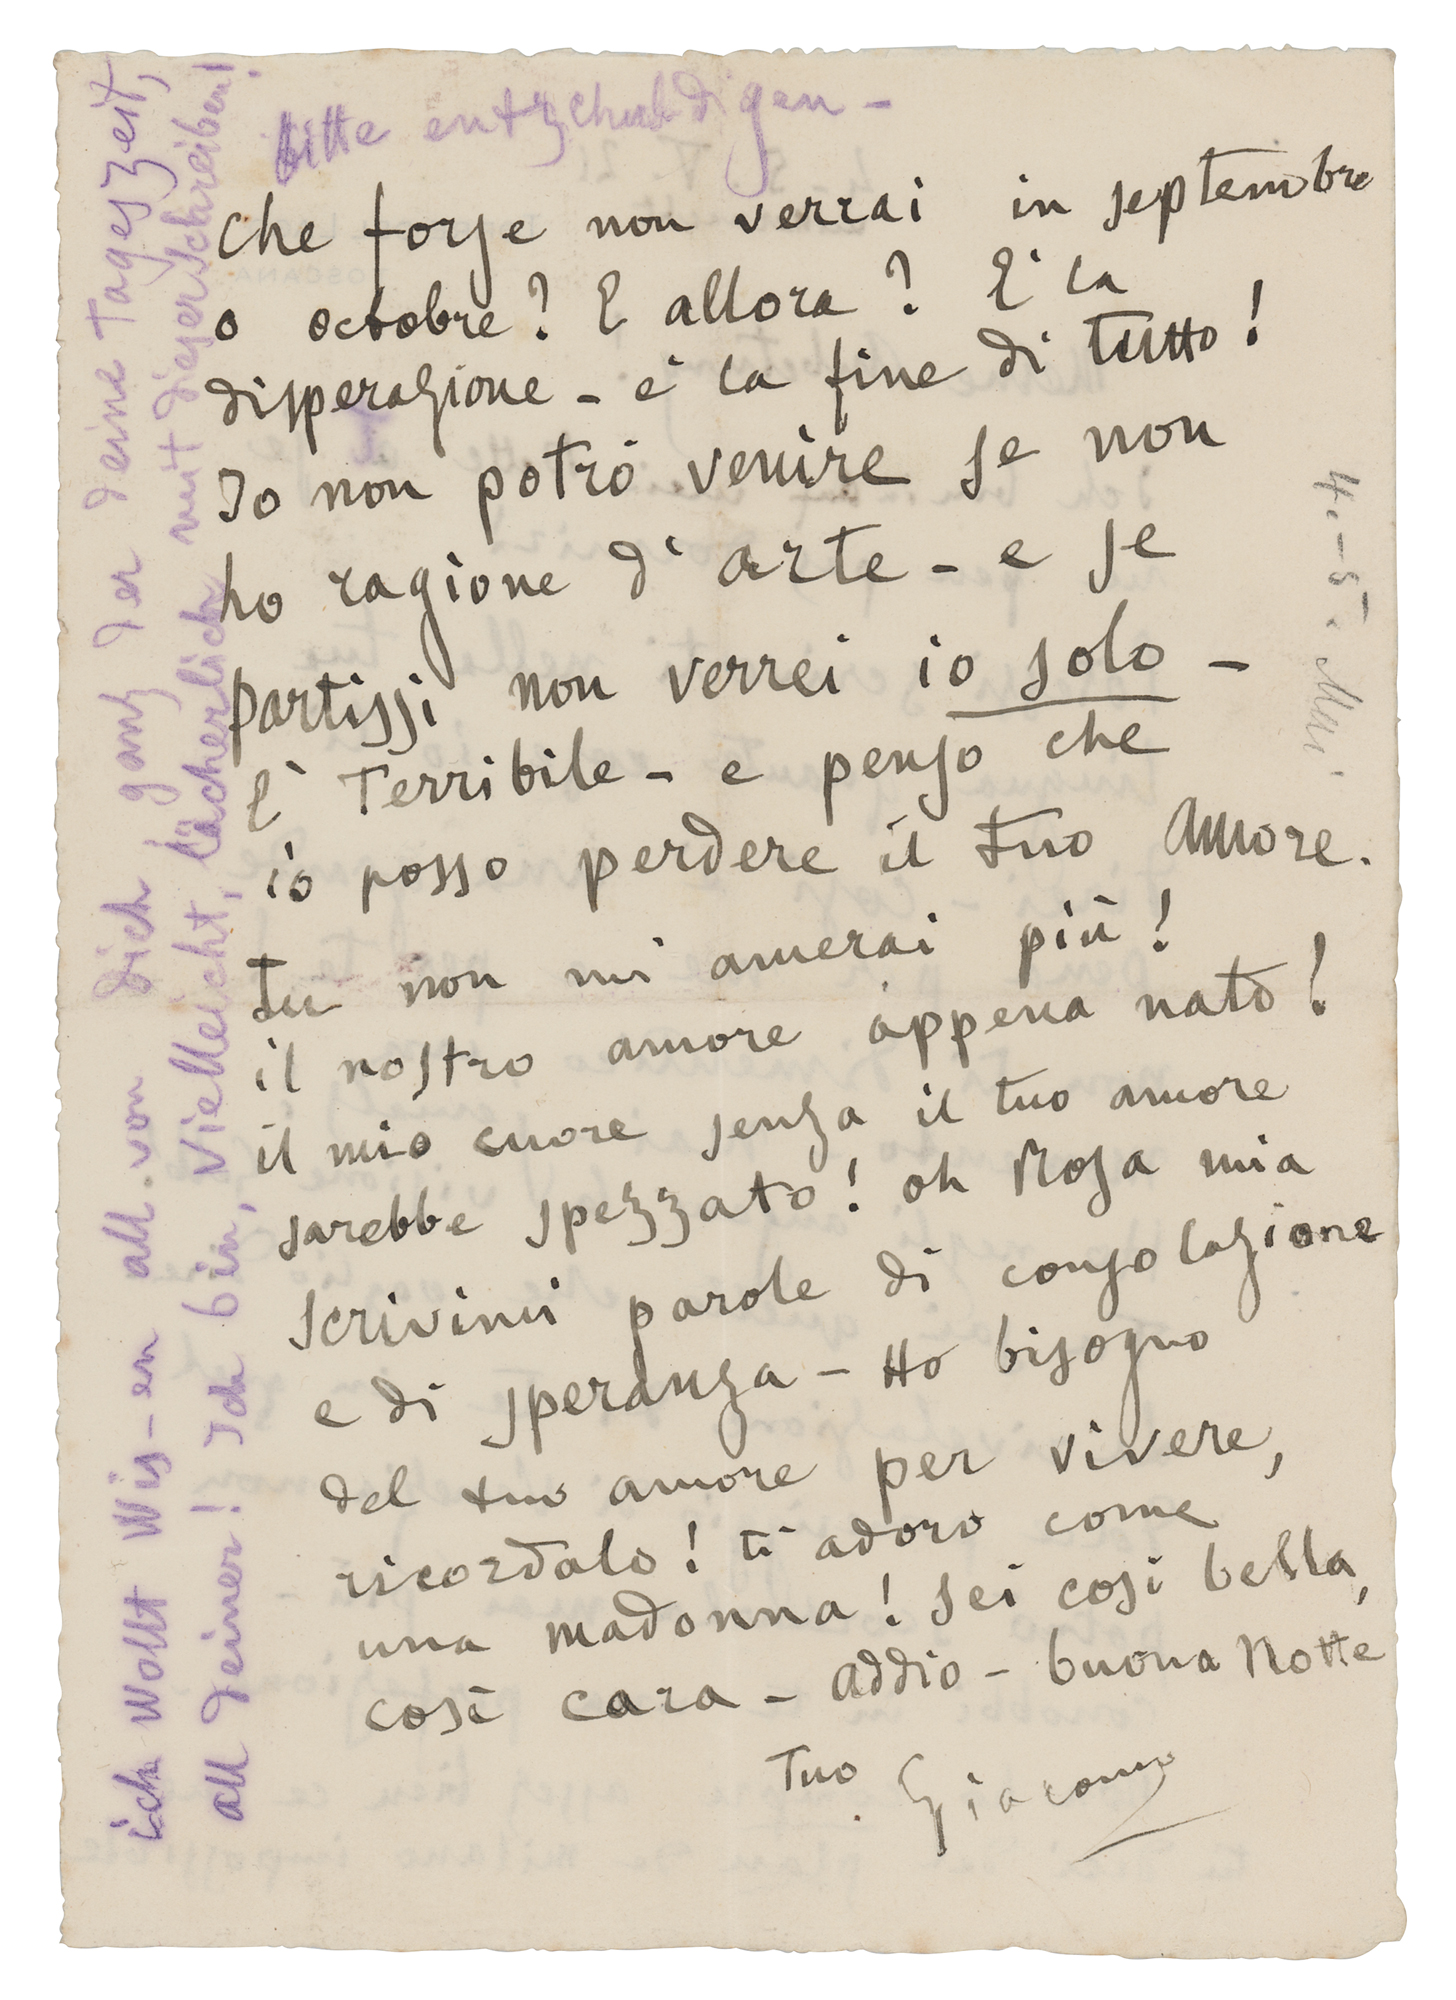 bitte entzchuldigen -
che forse non verrai in septembre
o octobre? E allora? E' la
disperazione - e' la fine di tutto!
Io non potrò venire se non
ho ragione d'arte - e se
partissi non verrei io solo -
E' terribile - e penso che
io posso perdere il tuo amore.
Tu non mi amerai più!
il nostro amore appena nato!
il mio cuore senza il tuo amore
sarebbe spezzato! oh Rosa mia
scrivimi parole di consolazione
e di speranza - Ho bisogno
del tuo amore per vivere,
ricordalo! ti adoro come
una madonna! Sei cosi bella,
così cara - addio - buona Notte
Tuo Giacomo
ich wollt Wis-en all. von dich ganz der deine Tageszeit,
all deiner! Ich bin, vielleicht, lächerlich mit dieser schreiben!
4. - 5. Mai